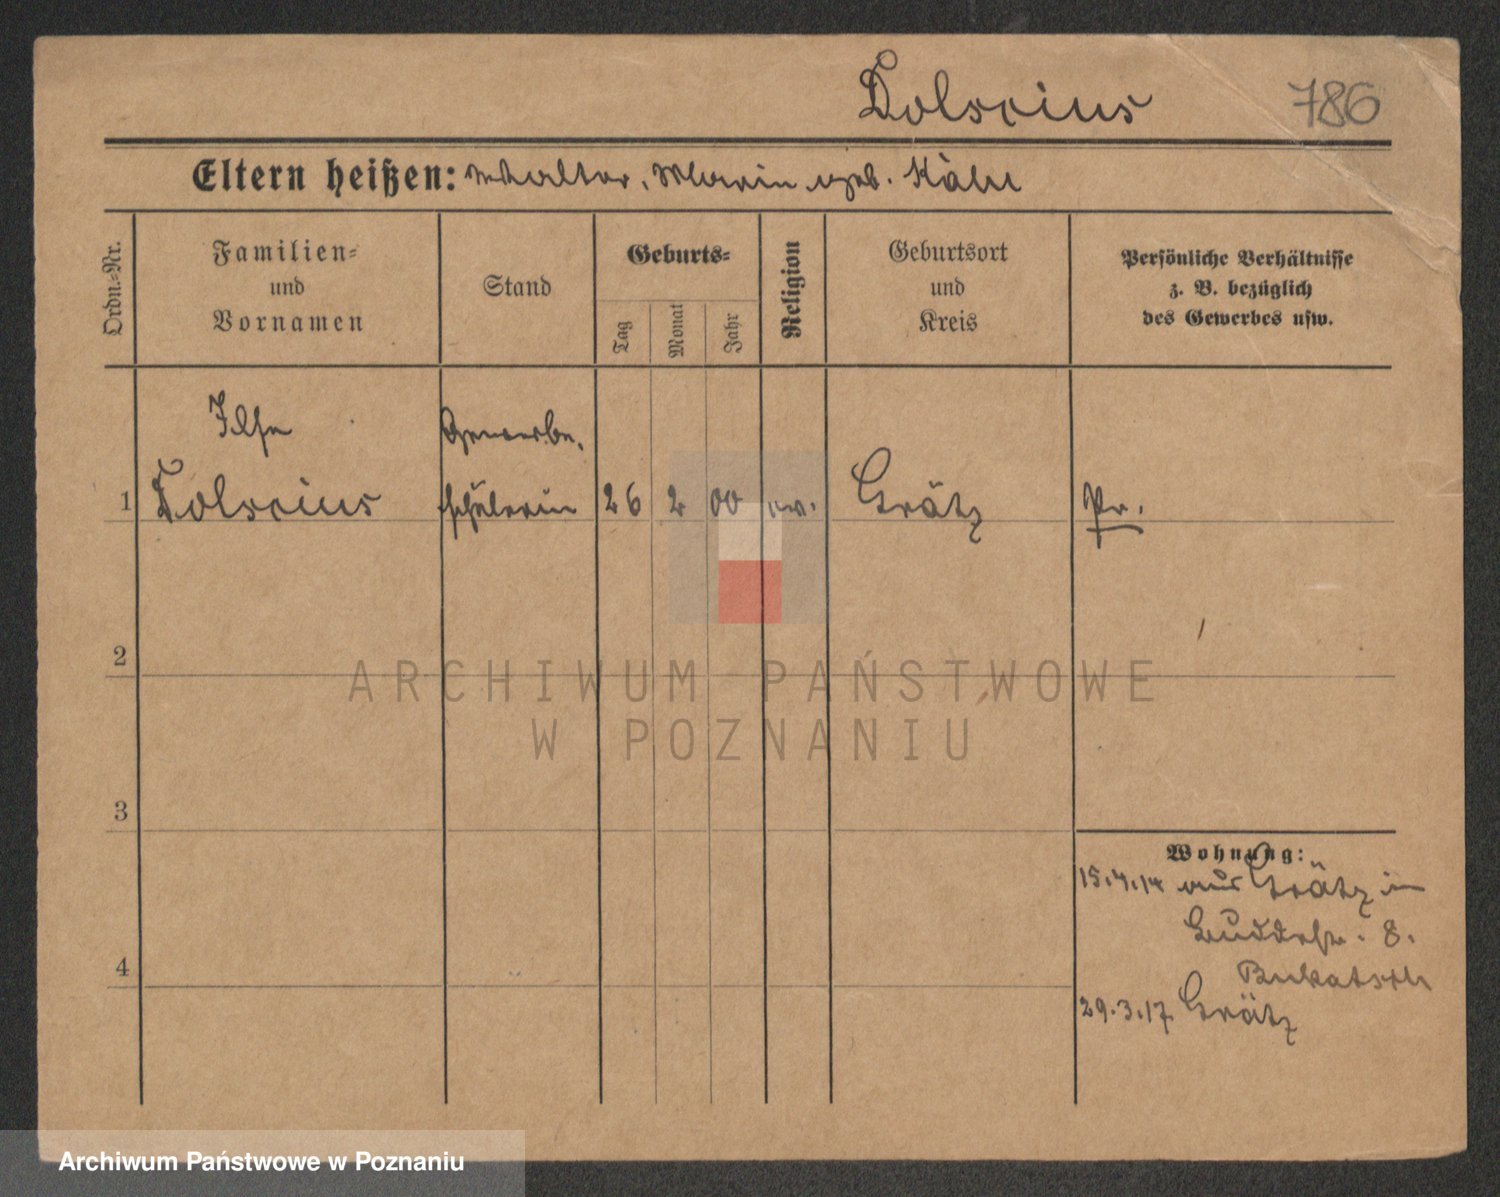 Tolscius 786
Eltern heißen: Walter, Marie geb. Kähl
Ordn.-Nr.
Familien-
und
Vornamen
Stand
Geburts-
Tag
Monat
Jahr
Religion
Geburtsort
und
Kreis
Persönliche Verhältnisse
z. B. bezüglich
des Gewerbes usw.
Ilse Gewerbe-
1 Tolscius schülerin 26 2 00 ev. Grätz Pr.
2
ARCHIWUM PAŃSTWOWE
W POZNANIU
3
Wohnung:
15.4.14 aus Grätz in
Buddestr. 8.
4
29.3.17. Grätz
Archiwum Państwowe w Poznaniu